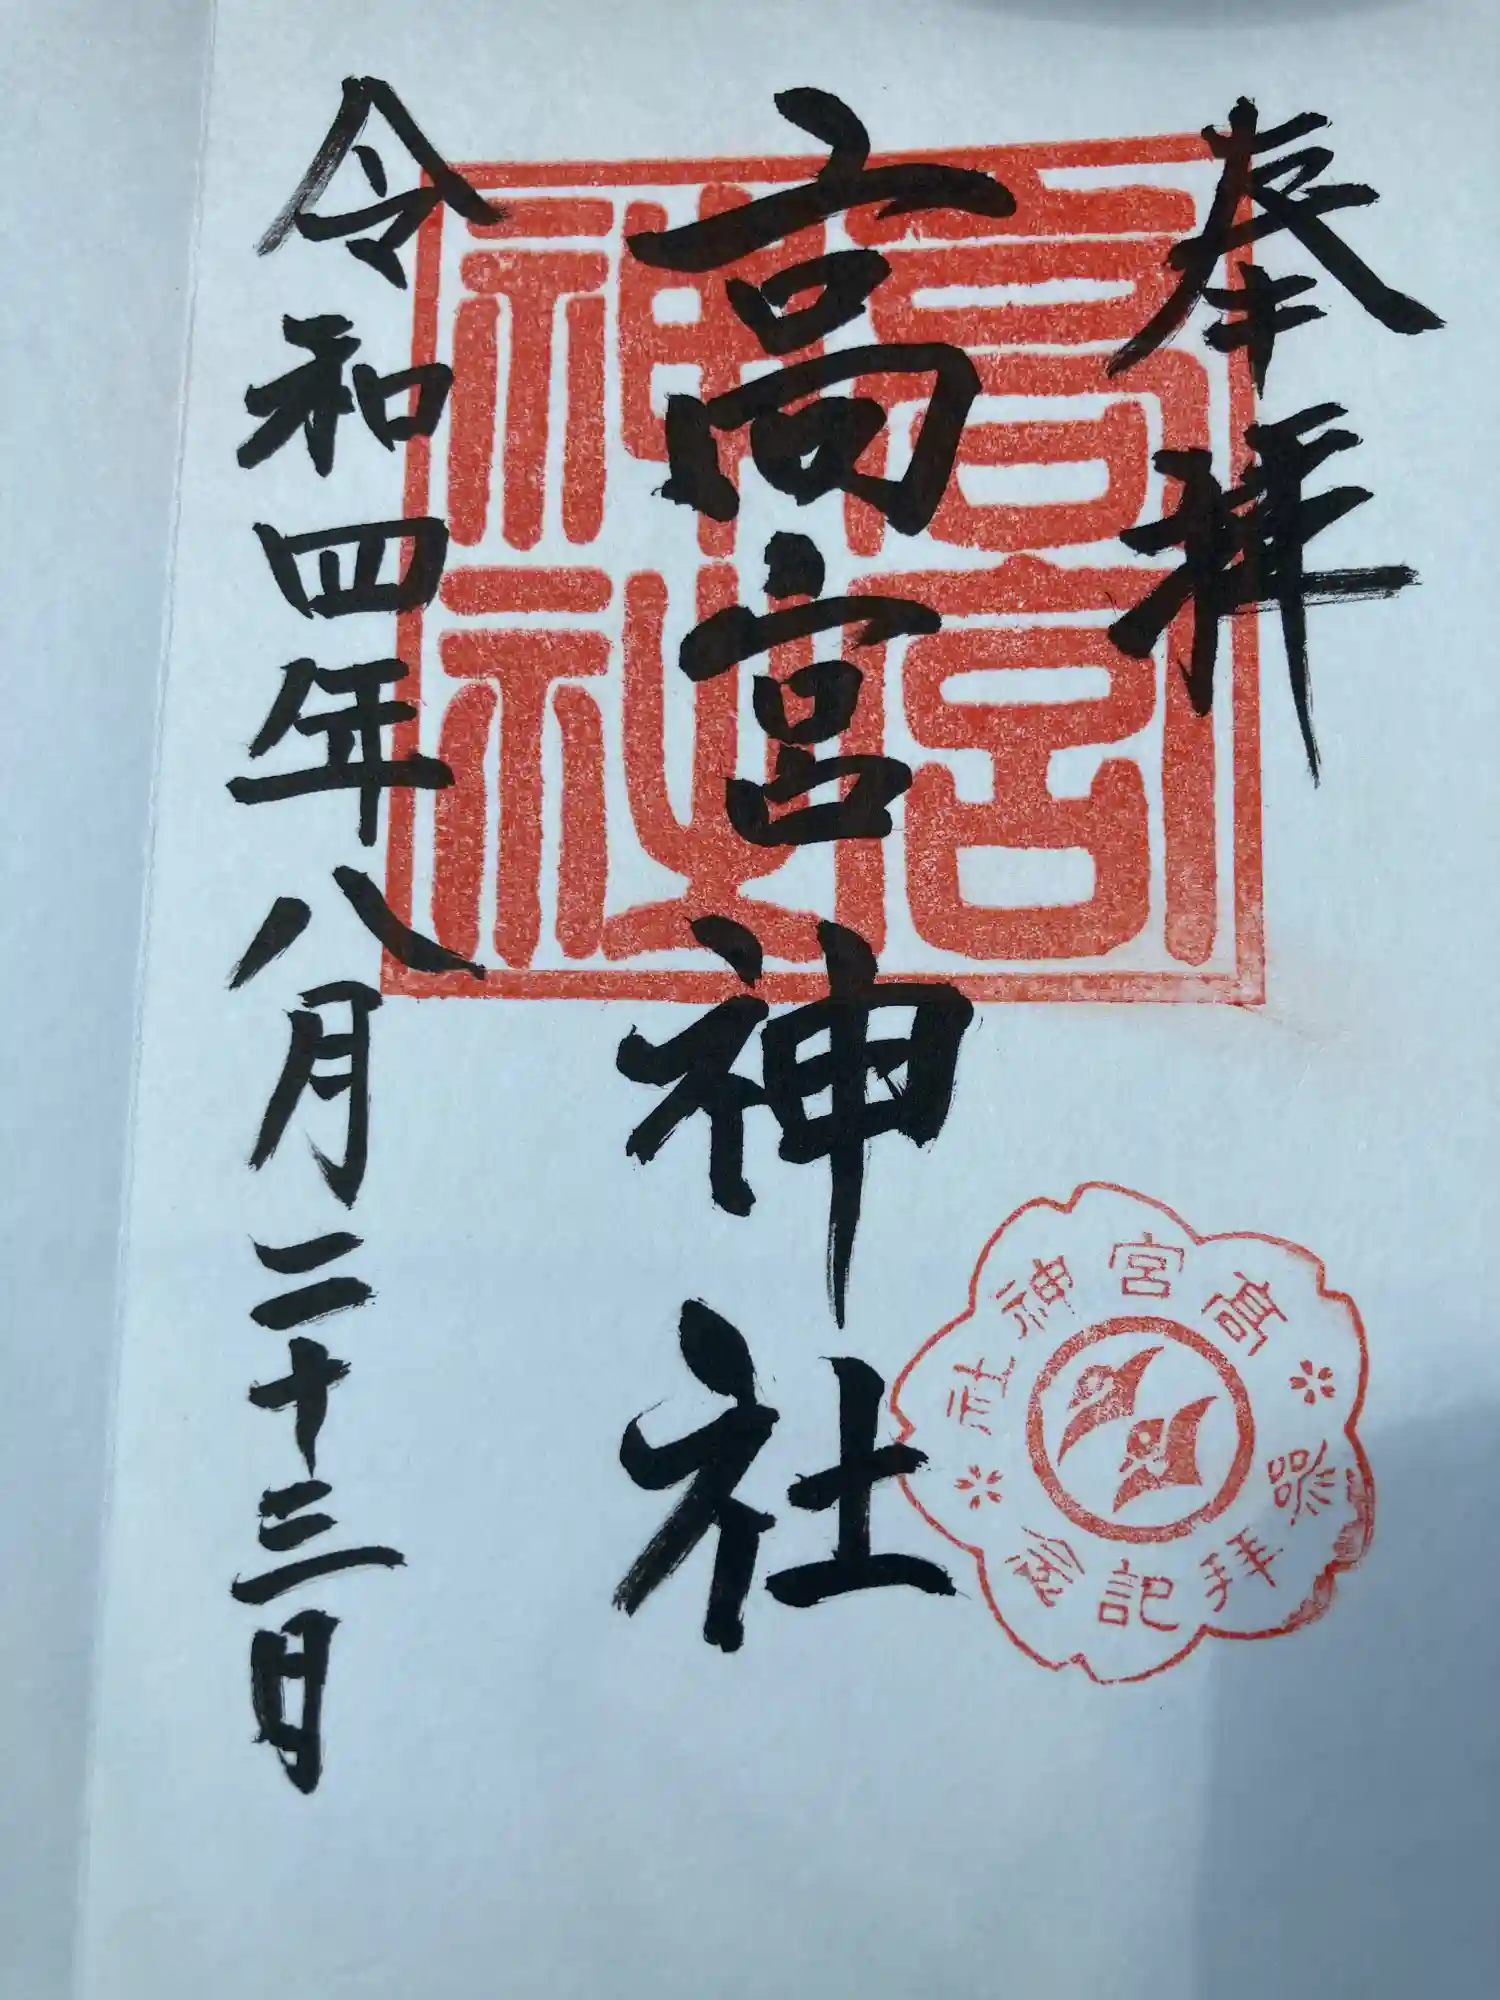 奉拝
高宮神社
令和四年八月二十三日
高宮神社
高宮神社
参拝記念